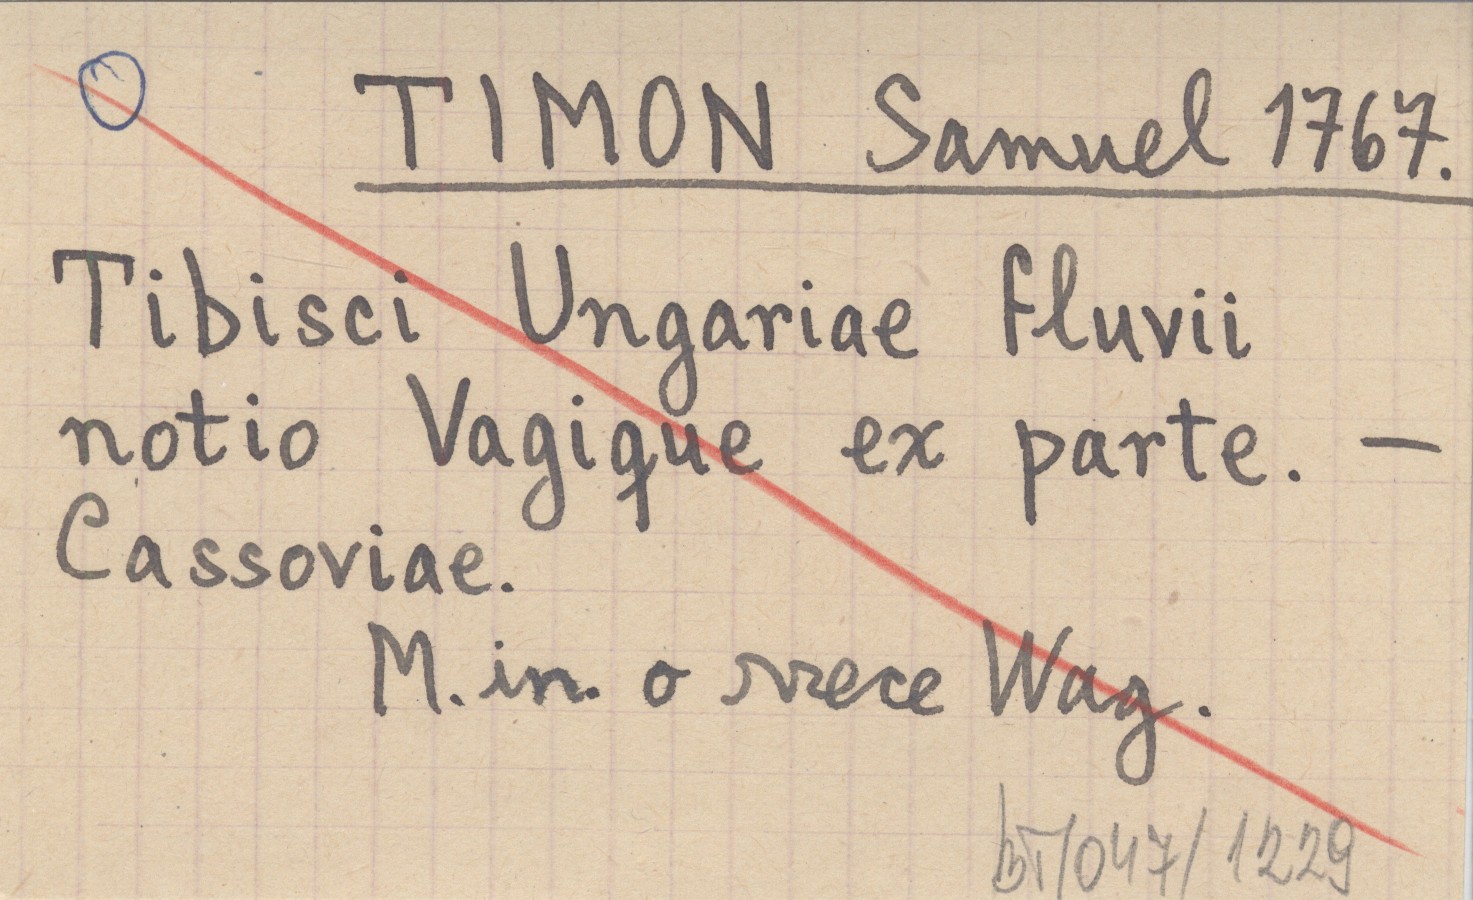 TIMON Samuel 1767.
Tibisci Ungariae fluvii
notio Vagique ex parte. —
Cassoviae.
M. in. o rzece Wag.
bT/047/1229